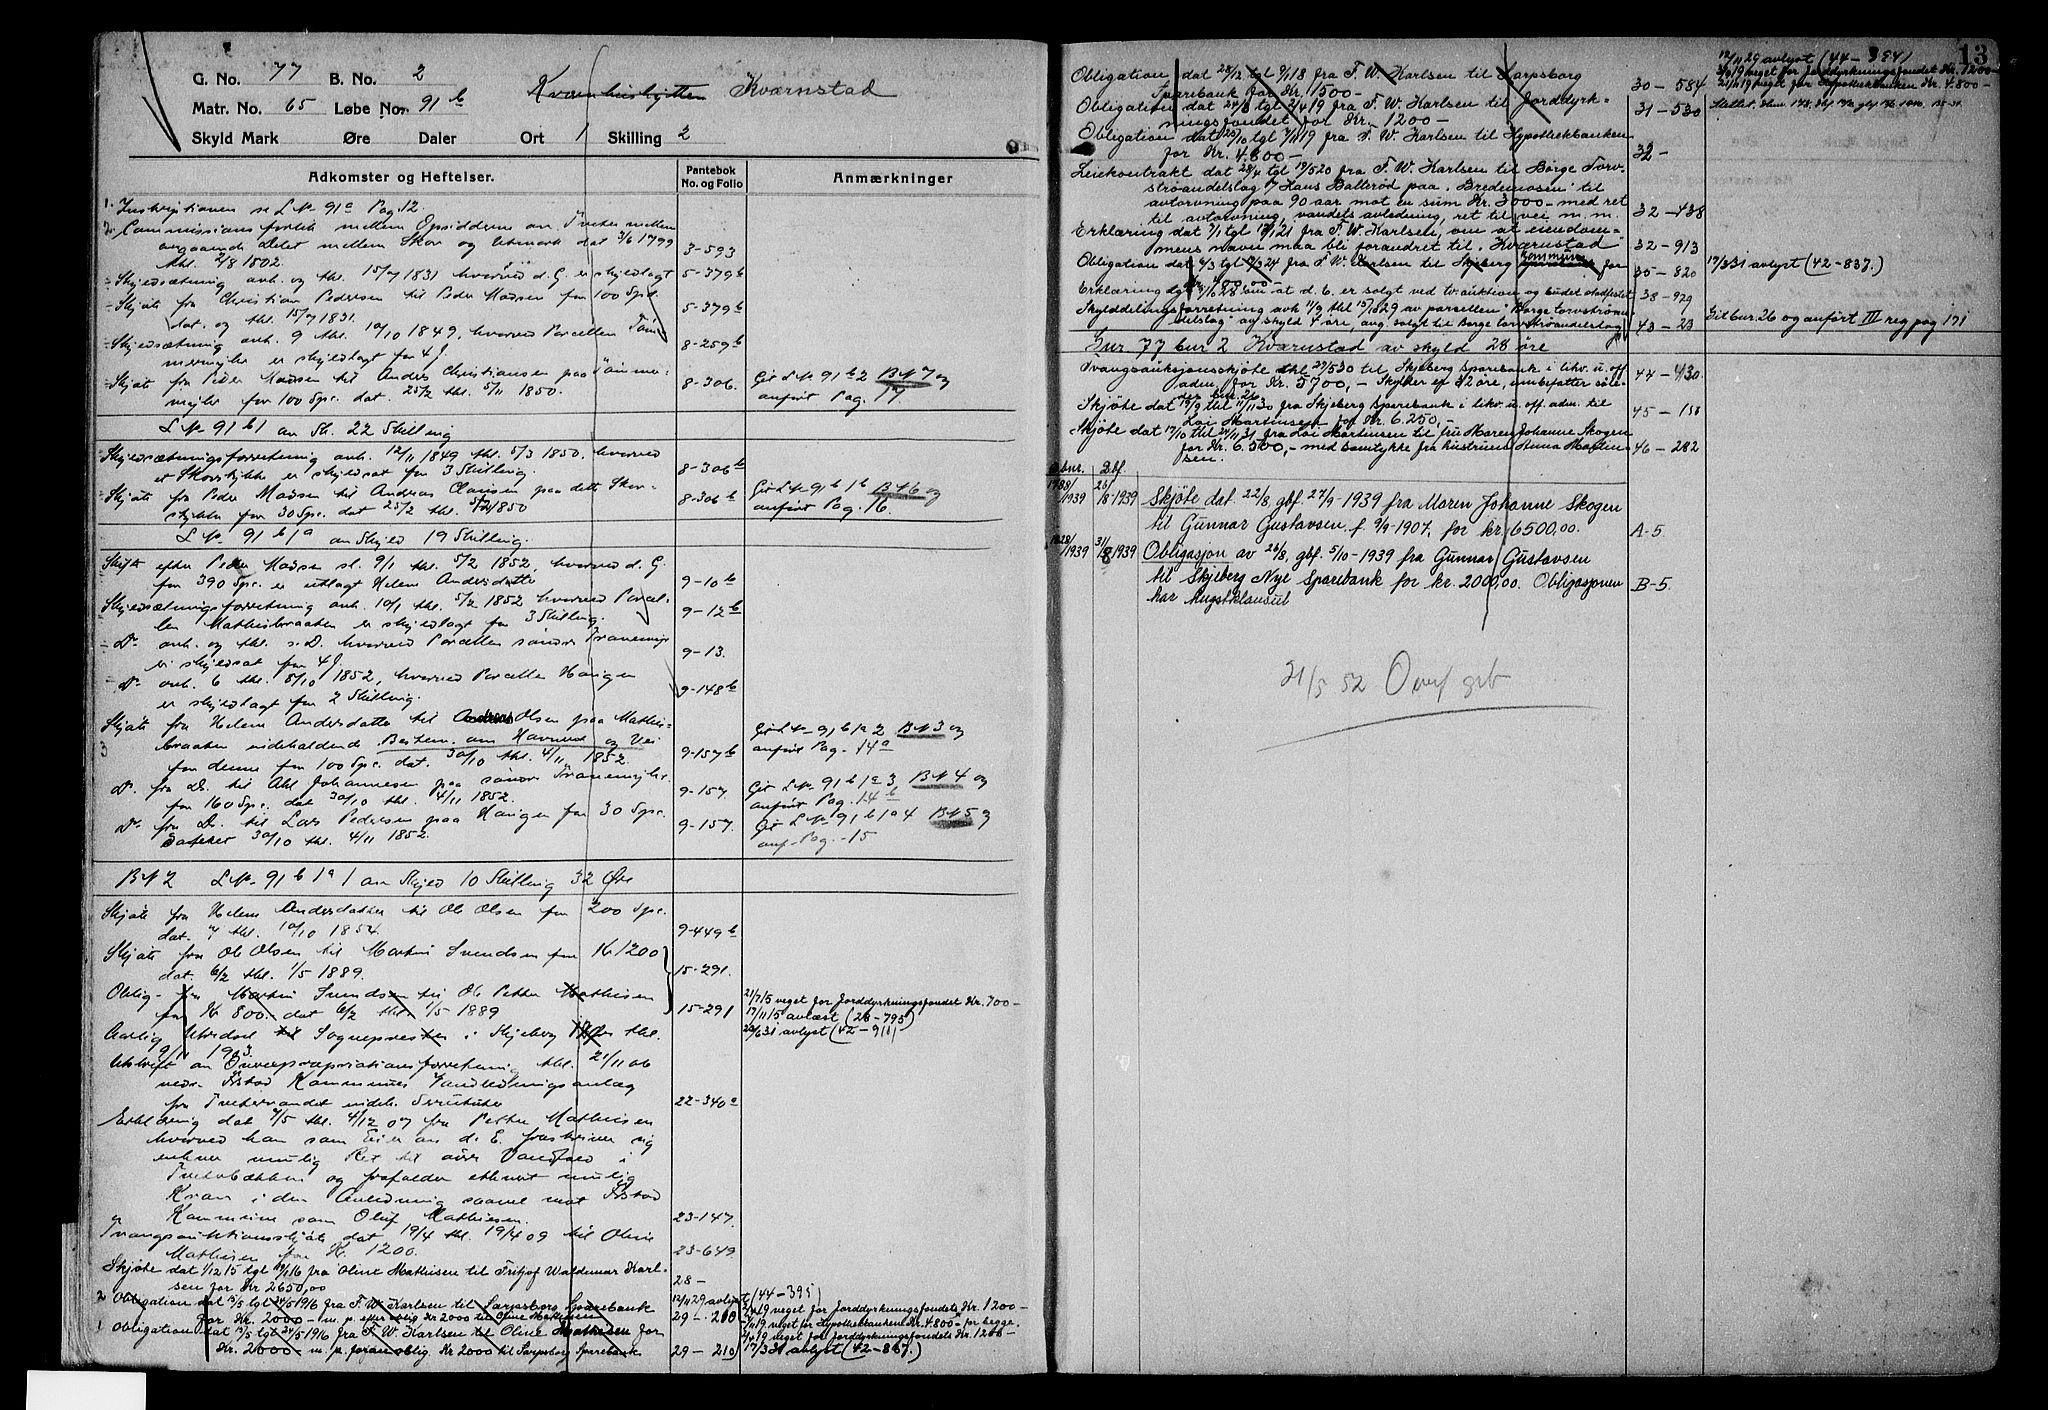 G. No. 77 B. No. 2
Matr. No. 65 Løbe No. 91 b
Kværnhushytten Kværnstad
Skyld Mark Øre Daler Ort 1 Skilling 2
Adkomster og Heftelser.
Pantebok
No. og Folio
Anmærkninger
1. Inskriptionen se L No 91a Pag. 12.
2. Commissionsforlik mellem Opsidderne av Tveter mellem
angaaende Delet mellem Skov og Utmark dat 3/6 1799
thl. 7/8 1802. 3-593
Skyldsætning avh. og thl. 15/7 1831 hvorved d. G. er skyldlagt 5-379b
Skjøte fra Christian Pedersen til Peder Madsen for 100 Spd.
dat. og thl. 15/7 1831. 5-379b
Skyldsætning avh. 9 thl. 10/10 1849, hvorved Parcellen Tøm-
mermyhr er skyldlagt for 4 s. 8-259b
Skjøte fra Peder Madsen til Anders Christiansen paa Tømmer-
myhr for 100 Spd. dat. 25/2 thl. 5/11 1850. 8-306. Git L No 91 b 2 B N 7 og
anført Pag. 17.
L No 91 b 1 av Sk. 22 Skilling
Skyldsætningsforretning avh. 12/11 1849 thl. 5/3 1850, hvorved
et Skovstykke er skyldsat for 3 Skilling. 8-306b
Skjøte fra Peder Madsen til Andreas Clausen paa dette Skov-
stykke for 30 Spd. dat 25/2 thl. 5/11 1850 8-306b Git L No 91 b 1 b B N 6 og
anført Pag. 16.
L No 91 b 1 a av Skyld 19 Skilling.
Skifte efter Peder Madsen sl. 9/1 thl. 5/2 1852, hvorved d. G.
for 390 Spd. er utlagt Helene Andersdatter 9-10b
Skyldsætningsforretning avh. 10/1 thl. 5/2 1852 hvorved Parcel-
len Mathisbraaten er skyldlagt for 3 Skilling. 9-12b
Do avh. og thl. s. D. hvorved Parcellen søndre Tranemyr
er skyldsat for 4 s. 9-13.
Do avh. 6 thl. 8/10 1852, hvorved Parcellen Haugen
er skyldlagt for 2 Skilling. 9-148b
Skjøte fra Helene Andersdatter til Andreas Olsen paa Mathis-
braaten indeholdende Bestem. om Havnerett og Vei
for denne for 100 Spd. dat. 30/10 thl. 4/11 1852. 9-157b Git L No 91 b 1 a 2 B N 3 og
anført Pag. 14a
Do fra Do til Abl. Johannesen paa søndre Tranemyhr
for 160 Spd. dat 30/10 thl. 4/11 1852. 9-157. Git L No 91 b 1 a 3 B N 4 og
anført Pag. 14b
Do fra Do til Lars Pedersen paa Haugen for 30 Spd.
dateret 30/10 thl. 4/11 1852. 9-157. Git L No 91 b 1 a 4 B N 5 og
anf. Pag. 15
B N 2 L No 91 b 1 a 1 av Skyld 10 Skilling 32 Øre
Skjøte fra Helene Andersdatter til Ole Olsen for 200 Spd.
dat. 7 thl. 10/10 1854. 9-449b
Skjøte fra Ole Olsen til Martin Svendsen for Kr 1200
dat. 6/2 thl. 1/5 1889. 15-291.
Oblig. fra Martin Svendsen til Ole Petter Mathisen
for Kr 800.- dat 6/2 thl. 1/5 1889 15-291
21/7 15 veget for Jorddyrkningsfondet Kr. 700-
17/11 15 avlæst (26-795)
23/6 31 avlyst (42-911)
Aarlig Utredsel til Sognepresten i Skjeberg thl.
1903.
Utskrift av Overexpropriationsforretning thl. 21/11 06
vedr. Ystad Kommunes Vandledningsanlæg
fra Tvetervandet indeh. Servitute 22-340a
Erklæring dat 7/5 thl. 4/12 07 fra Petter Mathisen
hvorved han som Eier av d. E. fraskriver sig
enhver mulig Ret til over Vandfald i
Tveterbækken og frafalder ethvert mulig
Krav i den Anledning saavel mot Ystad
Kommune som Oluf Mathiesen. 23-147.
Tvangsauktionsskjøte dat 19/4 thl. 19/4 09 til Oline
Mathisen for Kr. 1200. 23-649.
Skjøte dat 1/12 15 tgl 16 fra Oline Mathisen til Fritjof Waldemar Karl-
sen for Kr 2650,00 28-
2 Obligation dat 13/5 tgl 24/5 1916 fra F. W. Karlsen til Sarpsborg Sparebank
for Kr. 2000- m. p. efter oblig Kr 2000 til Oline Mathisen 29-210
12/11 29 avlyst (44-395)
2/4 19 veget for Jorddyrkningsfondets Kr. 1200-
7/11 19 veget for Hypothekbankens Kr. 4.800- for begge.
1 Obligation dat 13/5 tgt 24/5 1916 fra F. W. Karlsen til Oline Mathisen for
Kr. 2000- m. p. foran oblig. Kr 2000 til Sarpsborg Sparebank 29-210
2/4 19 veget for Jorddyrkningsfondets Kr. 1200-
17/3 31 avlyst (42-837.)
13
Obligation dat 28/12 tgl 9/1 18 fra F. W. Karlsen til Sarpsborg
Sparebank for Kr. 1500- 30-584
12/11 29 avlyst (44-394)
2/4 19 veget for Jorddyrkningsfondet Kr. 1200-
21/11 19 veget for Hypothekbanken Kr. 4.800-
Obligation dat 24/3 tgl 2/4 19 fra F. W. Karlsen til Jorddyrk-
ningsfondet for Kr. 1200- 31-530
Obligation dat 20/10 tgl 7/11 19 fra F. W. Karlsen til Hypothekbanken
for Kr. 4.800- 32-
Leiekontrakt dat 28/4 tgl 19/5 20 fra F. W. Karlsen til Borge Torv-
strøandelslag v/ Hans Balterød paa "Bredemosen" til
avtorvning paa 90 aar mot en sum Kr. 3000- med ret
til avtorvning, vandets avledning, ret til vei m. m. 32-438
Erklæring dat 7/1 tgl 19/1 21 fra F. W. Karlsen, om at eiendom-
mens navn maa bli forandret til "Kværnstad" 32-913
Obligation dat 6/3 tgl 9/3 24 fra F. W. Karlsen til Skjeberg kommune for
Kr. 700.00- 35-820 17/3 31 avlyst (42-837.)
Erklæring dgl 28 om at d. b. er solgt ved tv. auktion og budet stadfestet 38-929
Skylddelingsforretning avh 11/9 thl 15/10 29 av parsellen "Borge torvstrøan-
delslag" av skyld 4 øre, avg. solgt til Borge torvstrøandelslag 43-23 Git bnr. 26 og anført III reg pag 171
Gnr. 77 bnr 2 Kværnstad av skyld 28 øre
Tvangsauksjonsskjøte thl 27/5 30 til Skjeberg Sparebank i likv. u. off.
adm. for Kr. 5700,- Skylden er 32 øre, innbefatter såle-
des bnr. 26 44-430.
Skjøte dat 19/9 thl 11/11 30 fra Skjeberg Sparebank i likv. u. off. adm. til
Loi Martinsen for Kr. 6.250,- 45-158
Skjøte dat 17/10 thl 24/11 31 fra Loi Martinsen til fru Maren Johanne Skogen
for Kr. 6.500,- med samtykke fra hustruen Anna Martin-
sen. 46-282
Dbnr. Dbf.
1788/1939 25/8-1939 Skjøte dat. 22/8, gbf. 27/9-1939 fra Maren Johanne Skogen
til Gunnar Gustavsen, f. 9/9-1907, for kr. 6500,00. A-5.
1828/1939 31/8 1939 Obligasjon av 26/8, gbf. 5/10-1939 fra Gunnar Gustavsen
til Skjeberg Nye Sparebank for kr. 2000,00. Obligasjonen
har Angstklausul B-5.
21/5 52 Overf grb